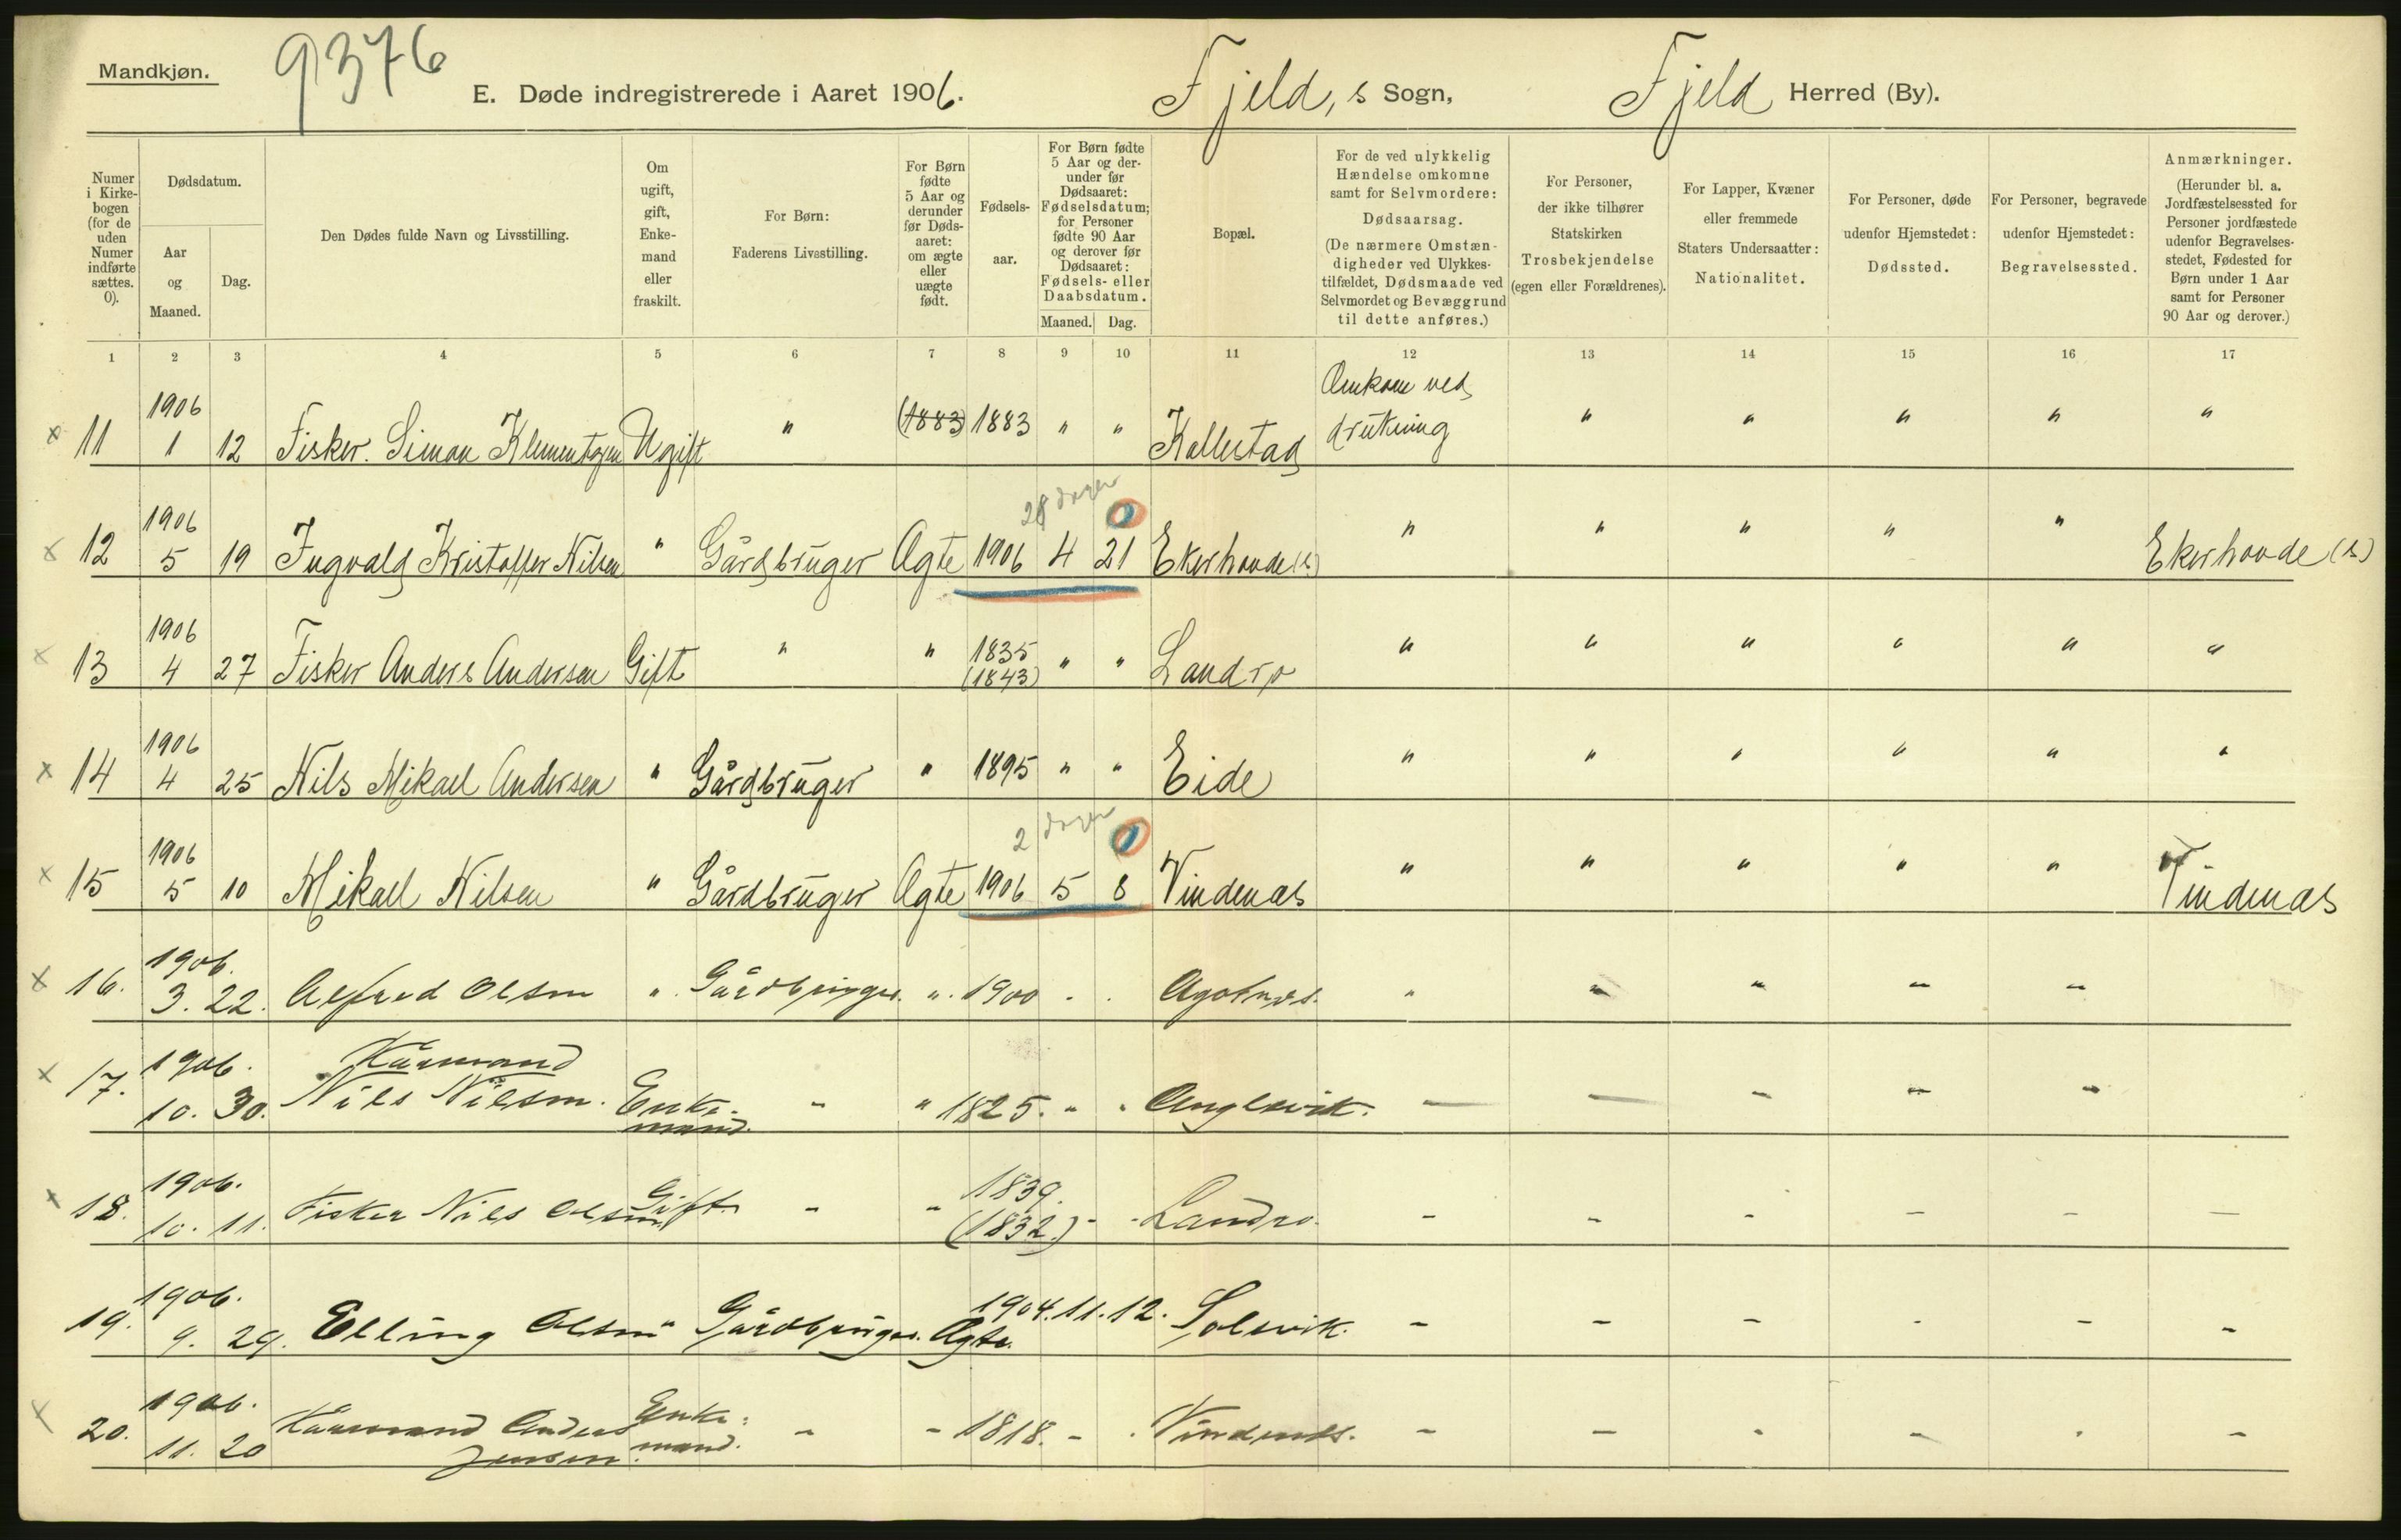 Mandkjøn.
9376
E. Døde indregistrerede i Aaret 1906. Fjeld, s Sogn, Fjeld Herred (By).
Numer i Kirke-bogen (for de uden Numer indførte sættes. 0).
Dødsdatum.
Aar og Maaned.
Dag.
Den Dødes fulde Navn og Livsstilling.
Om ugift, gift, Enke-mand eller fraskilt.
For Børn: Faderens Livsstilling.
For Børn fødte 5 Aar og derunder før Døds-aaret: om ægte eller uægte født.
Fødsels-aar.
For Børn fødte 5 Aar og der-under før Dødsaaret: Fødselsdatum; for Personer fødte 90 Aar og derover før Dødsaaret: Fødsels- eller Daabsdatum.
Maaned. Dag.
Bopæl.
For de ved ulykkelig Hændelse omkomne samt for Selvmordere: Dødsaarsag. (De nærmere Omstæn-digheder ved Ulykkes-tilfældet, Dødsmaade ved Selvmordet og Bevæggrund til dette anføres.)
For Personer, der ikke tilhører Statskirken Trosbekjendelse (egen eller Forældrenes).
For Lapper, Kvæner eller fremmede Staters Undersaatter: Nationalitet.
For Personer, døde udenfor Hjemstedet: Dødssted.
For Personer, begravede udenfor Hjemstedet: Begravelsessted.
Anmærkninger. (Herunder bl. a. Jordfæstelsessted for Personer jordfæstede udenfor Begravelses-stedet, Fødested for Børn under 1 Aar samt for Personer 90 Aar og derover.)
1 2 3 4 5 6 7 8 9 10 11 12 13 14 15 16 17
x 11 1906 1 12 Fisker. Simon Klementsen Ugift " (1883) 1883 " " Kallestad Omkom ved drukning " " " " "
28 dager 0
x 12 1906 5 19 Ingvald Kristoffer Nilsen " Gårdbruger Ægte 1906 4 21 Ekerhovde(s) " " " " " Ekerhovde (s)
x 13 1906 4 27 Fisker Anders Andersen Gift " " 1835 (1843) " " Landrø " " " " " "
x 14 1906 4 25 Nils Mikael Andersen " Gårdbruger " 1895 " " Eide " " " " " "
2 dager 0
x 15 1906 5 10 Mikael Nilsen " Gårdbruger Ægte 1906 5 8 Vindenæs " " " " " Vindenæs
x 16. 1906. 3. 22. Alfred Olsen " Gårdbruger. " 1900 - . Agotnæs. " " " " "
x 17. 1906. 10. 30. Kårmand Nils Nilsen. Enke-mand. - " 1825. " " Anglevik. - - - - -
x 18. 1906. 10. 11. Fisker Nils Olsen Gift. - - 1839. (1832.) - - Landrø. - - - - - -
19. 1906. 9. 29. Elling Olsen " Gårdbruger. Ægte. 1904. 11. 12. Solsvik. - - - - - -
x 20. 1906. 11. 20 Kårmand Anders Jensen Enke-mand. - - 1818. - . Vindenes. - - - - . -